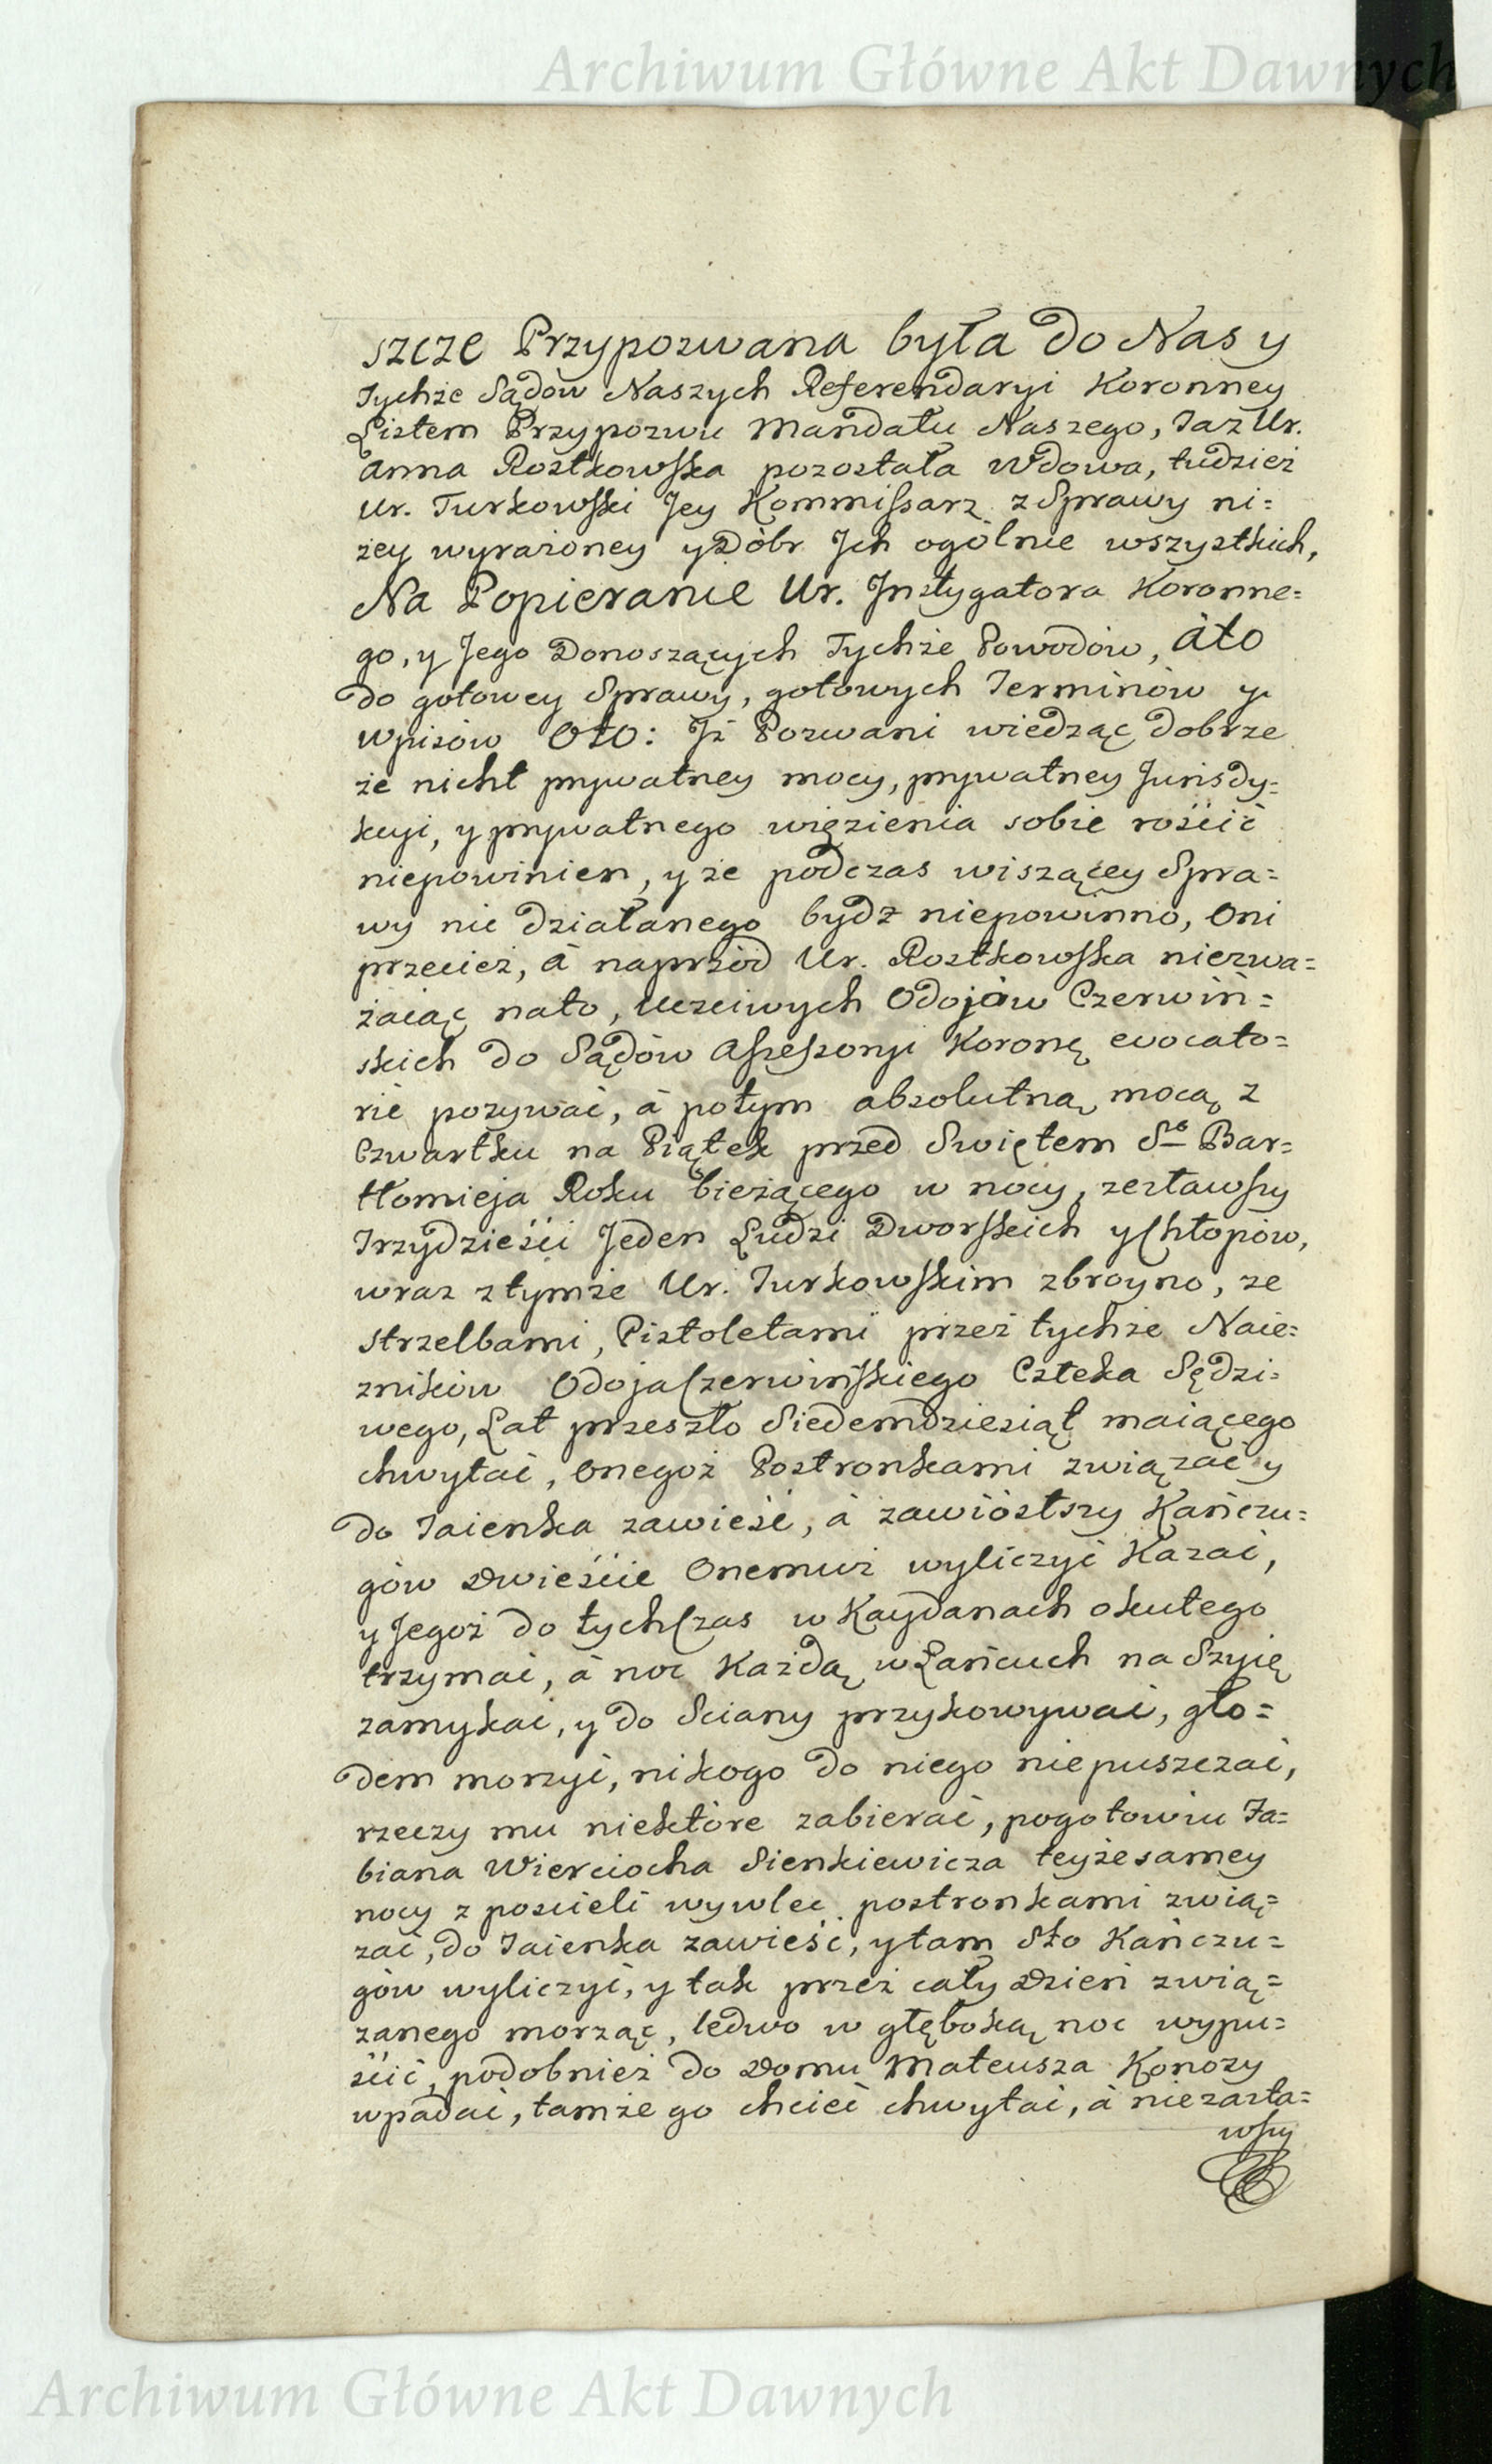 Archiwum Główne Akt Dawnych
szcze Przypozwana była do Nas y
Tychże Sądów Naszych Referendaryi Koronney
Listem Przypozwu Mandatu Naszego, Taż Ur.
Anna Rostkowska pozostała Wdowa, tudzież
Ur. Turkowski Jey Kommissarz z Sprawy ni=
żey wyrażoney y Dóbr Jch ogólnie wszystkich,
Na Popieranie Ur. Jnstygatora Koronne=
go, y Jego Donoszących Tychże Powodów, áto
do gotowey Sprawy, gotowych Terminów y
Wpisów Oto: Jż Pozwani wiedząc dobrze
że nicht prywatney mocy, prywatney Jurisdy=
kcyi, y prywatnego więzienia sobie rościć
niepowinien, y że podczas wiszącey Spra=
wy nic działanego bydź niepowinno, Oni
przecież, á naprzód Ur. Rostkowska niezwa=
żaiąc nato, Uczciwych Odojów Czerwiń=
skich do Sądów Assessoryi Koronę evocato=
rie pozywać, á potym absolutną mocą z
Czwartku na Piątek przed Swiętem Sgo Bar=
tłomieja Roku bieżącego w nocy, zesławszy
Trzydzieści Jeden Ludzi Dworskich y Chłopów,
wraz z tymże Ur. Turkowskim zbroyno, ze
strzelbami, Pistoletami przez tychże Naie=
zników Odoja Czerwińskiego Człeka Sędzi=
wego, Lat przeszło Siedemdziesiąt maiącego
chwytać, onegoż Postronkami związać y
do Jaienka zawieść, á zawiósłszy Kańczu=
gów Dwieście Onemuż wyliczyć Kazać,
y Jegoż do tych Czas w Kaydanach okutego
trzymać, á noc Każdą w Łańcuch na Szyię
zamykać, y do Sciany przykowywać, gło=
dem morzyć, nikogo do niego niepuszczać,
rzeczy mu niektóre zabierać, pogotowiu Fa=
biana Wierciocha Sienkiewicza teyże samey
nocy z poscieli wywlec postronkami zwią=
zać, do Jaienka zawieść, y tam Sto Kańczu=
gów wyliczyć, y tak przez cały Dzień zwią=
zanego morząc, ledwo w głęboką noc wypu=
ścić, podobnież do Domu Mateusza Konozy
wpadać, tamże go chcieć chwytać, á niezasta=
wszy
Archiwum Główne Akt Dawnych